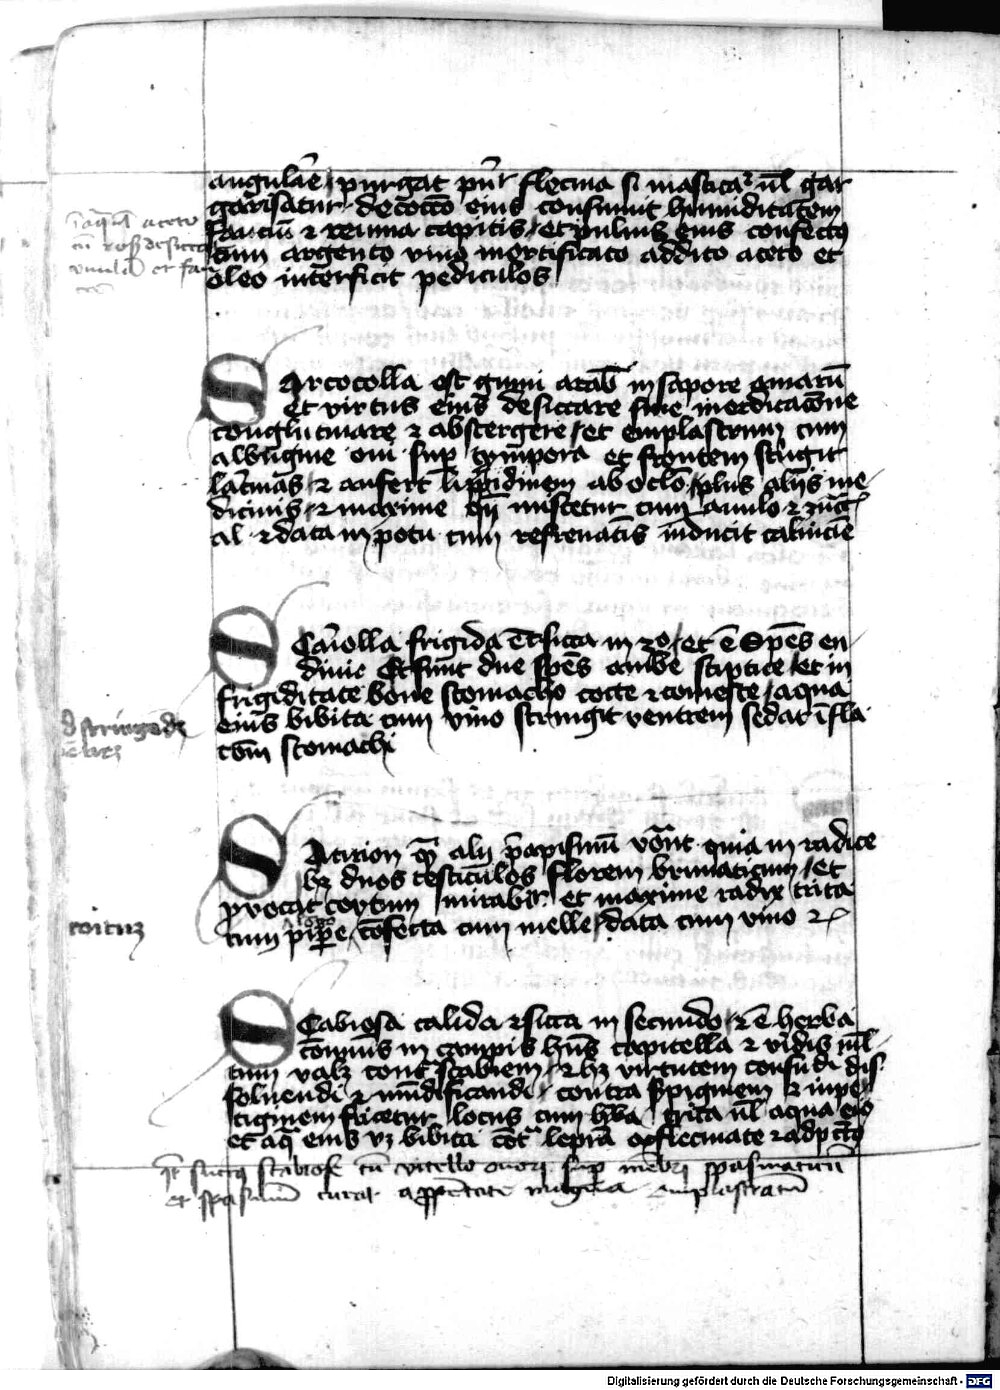 angulare purgat pur flecma si mastica ul gar
garisatur decocco eius consumit humiditatem
faucium et reuma capitis et pulvis eius confecto
cum argento vivo mortificato addito aceto et
oleo interficit pediculos
aceto
Sarcocolla est gumi arab in sapore amarum
et virtus eius desiccare sine mordicacione
conglutinare et abstergere et emplastrum cum
albugine oui sup tympora et frontem stringit
lacrimas et aufert lippidinem ab oclo plus aliis me
dicinis et maxime qn miscetur cum amilo et
al et data in potu cum refrenatis inducit caluicie
Scariolla frigida e et sicca in 2o et e spes en
diuie Et sunt due spes ambe sciptice et in
frigiditate bone stomacho cocte et comeste aqua
eius bibita cum vino stringit ventrem sedat infla
com stomachi
Satirion q alii priapismu vocant quia in radice
hz duos testiculos florem brumaticum et
prouocat coytum mirabir et maxime radix trita
cum pipere confecta cum melle data cum vino
longo
coitus
Scabiosa calida et sicca in secundo et e herba
communis in campis hns capitella et viridis mul
tum valz contra scabiem et hz virtutem confundi dis
soluendi et mundificandi contra serpiginem et inpe
tiginem fricetur locus cum hba trita ul aqua eius
et aqua eius bibita contra lepra
succus scabiose cu vitello ouori sup
et spasmum curat emplastratum
Digitalisierung gefördert durch die Deutsche Forschungsgemeinschaft - DFG